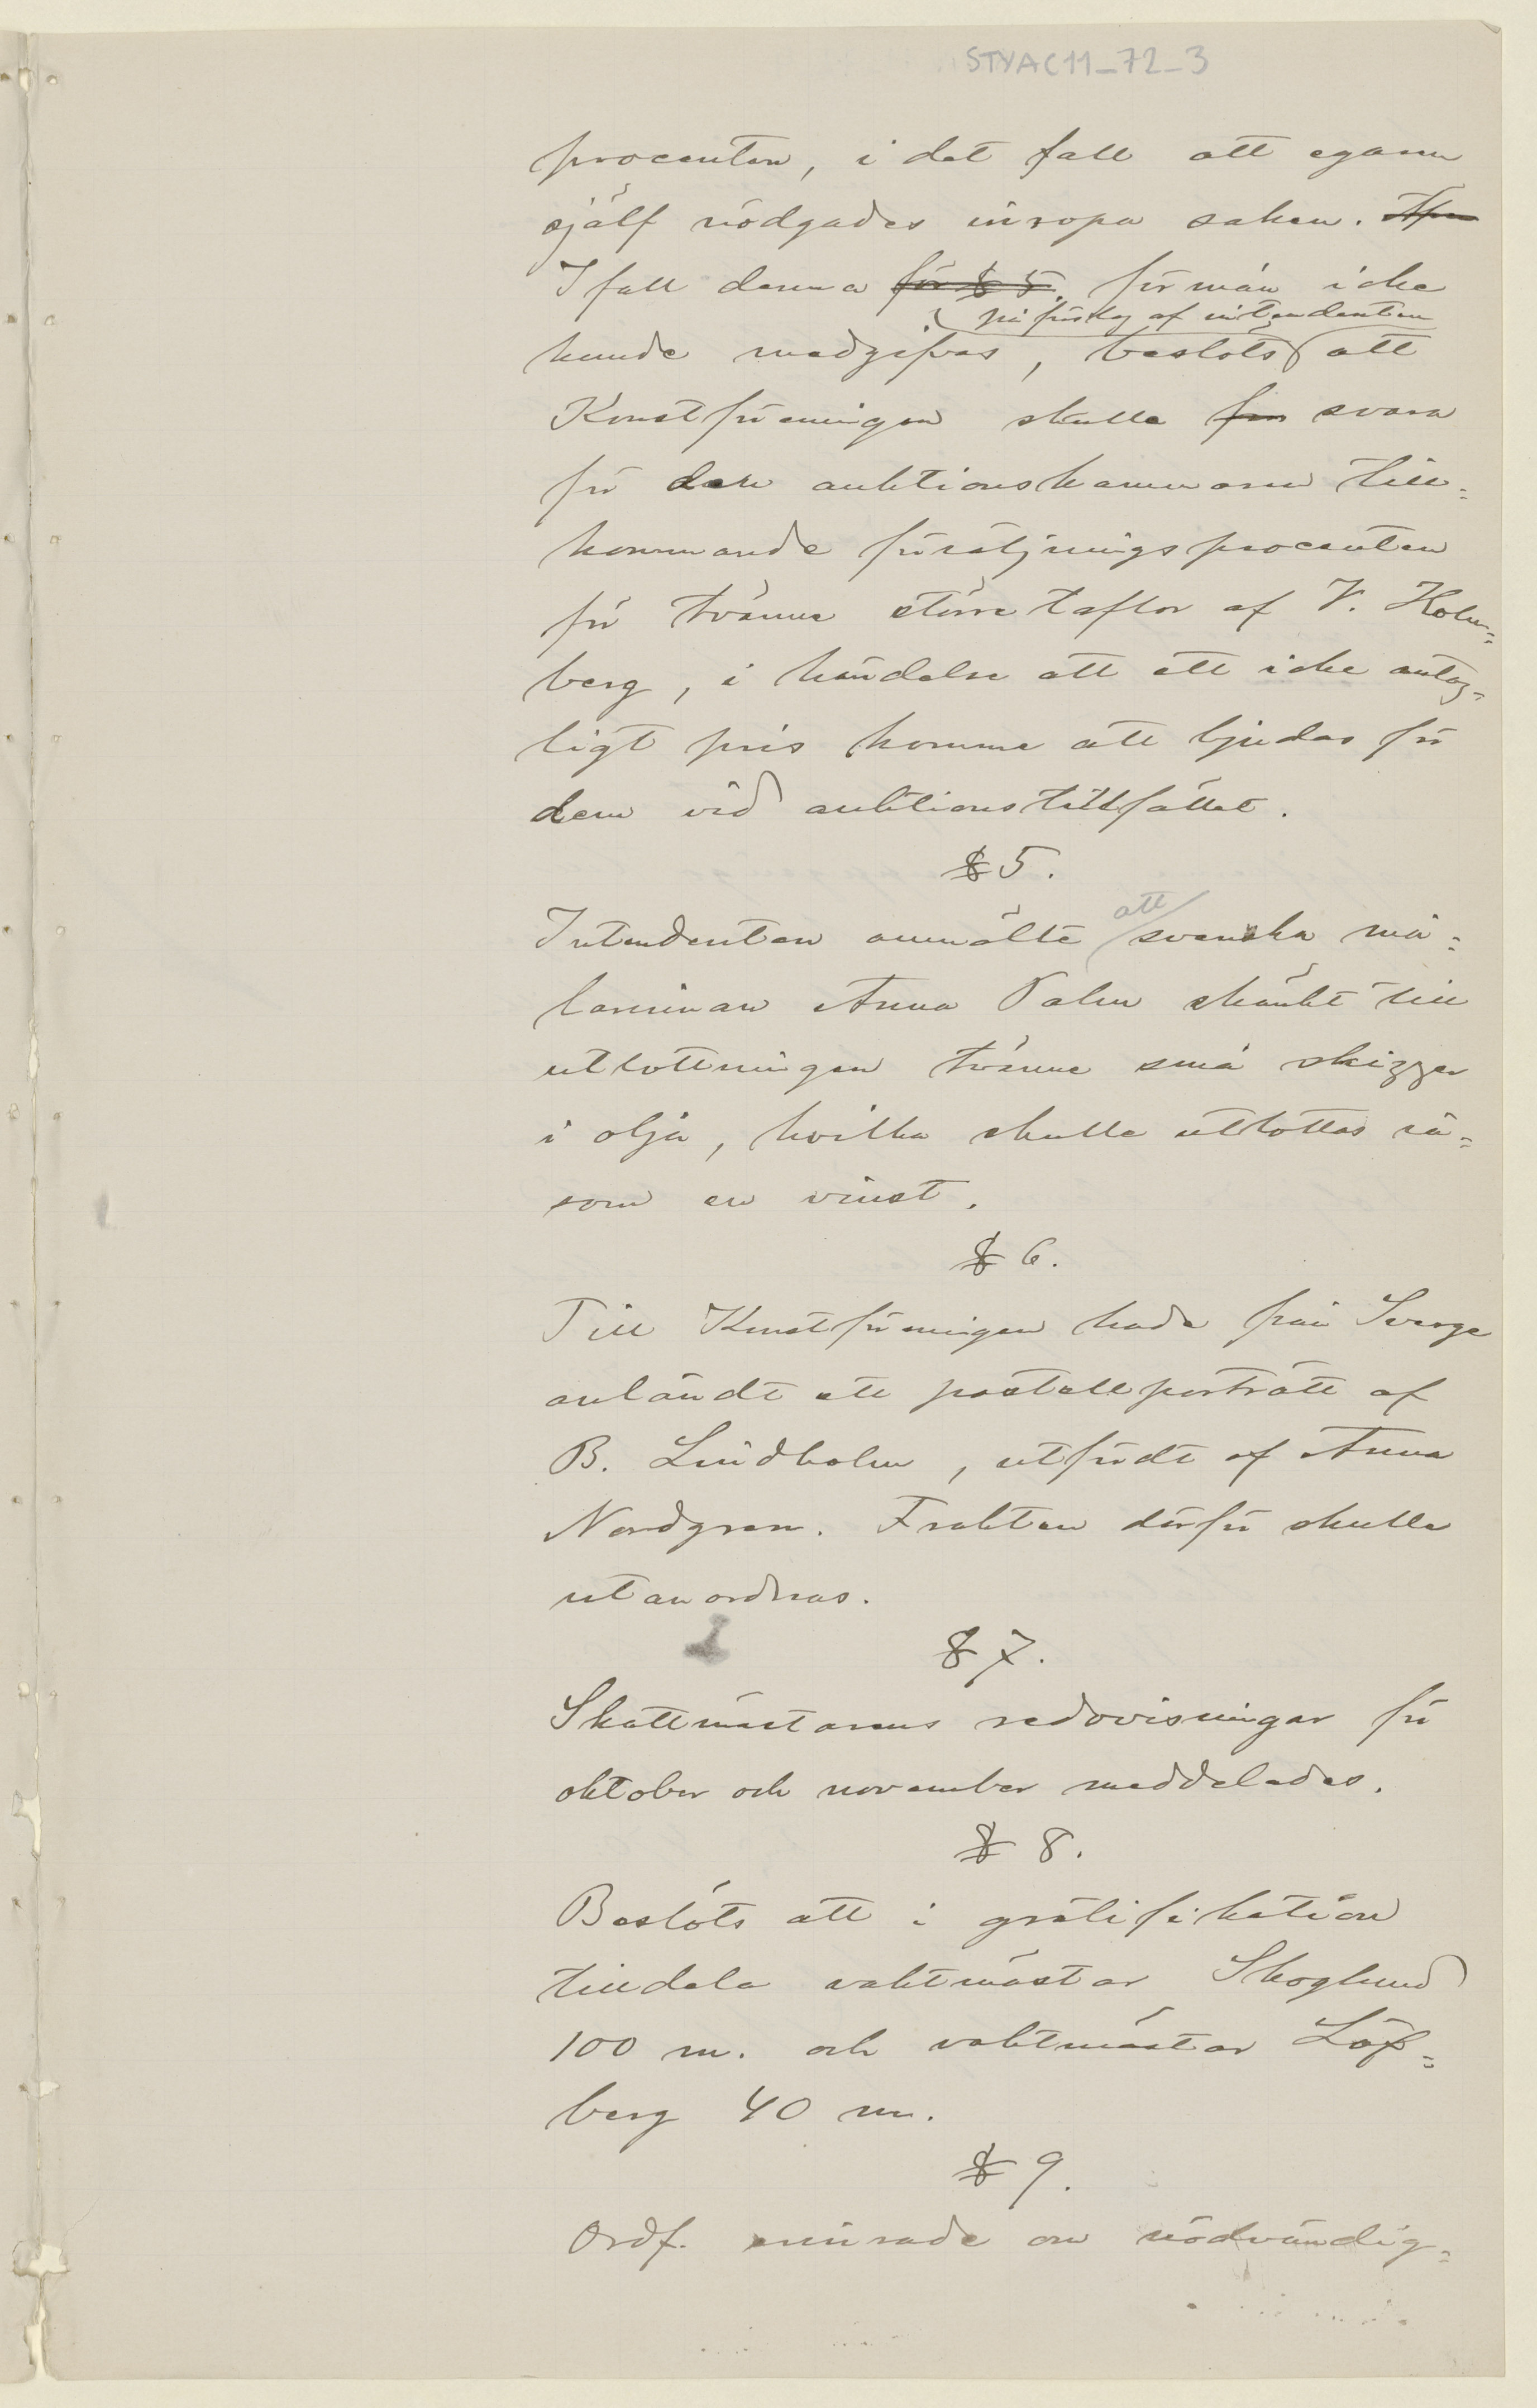 STYAC11_72_3
procenten, i det fall att egaren
själf nödgades inropa saken.
I fall denna för § 5. förmån icke
på förslag af intendenten
kunde medgifvas, beslöts att
Konstföreningen skulle svara
för den auktionskammaren till-
kommande försäljningsprocenten
för tvänne större taflor af V. Holm-
berg, i händelse att ett icke antag-
ligt pris komme att bjudas för
dem vid auktionstillfället.
§ 5.
att
Intendenten anmälte svenska må-
larinnan Anna Palm skänkt till
utlottningen tvänne små skizzer
i olja, hvilka skulle utlottas så-
som en vinst.
§ 6.
Till Konstföreningen hade från Sverge
anländt ett pastellporträtt af
B. Lindholm, utfördt af Anna
Nordgren. Frakten därför skulle
utanordnas.
§ 7.
Skattmästarens redovisningar för
oktober och november meddelades.
§ 8.
Beslöts att i gratifikation
tilldela vaktmästar Skoglund
100 m. och vaktmästar Löf-
berg 40 m.
§ 9.
Ordf. erinrade om nödvändig-